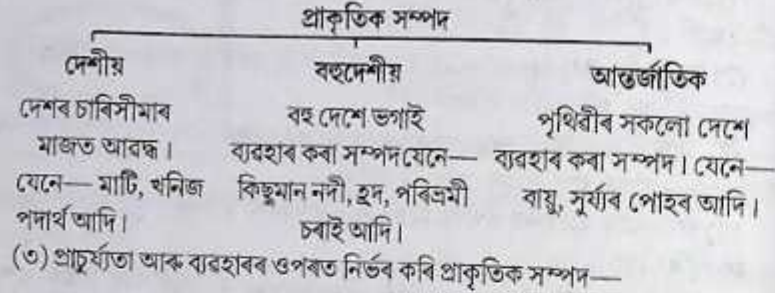 প্ৰাকৃতিক সম্পদ
দেশীয়
দেশৰ চাৰিসীমাৰ
মাজত আবদ্ধ ।
যেনে— মাটি, খনিজ
পদাৰ্থ আদি ।
বহুদেশীয়
বহু দেশে ভগাই
ব্যৱহাৰ কৰা সম্পদ যেনে—
কিছুমান নদী, হ্ৰদ, পৰিভ্ৰমী
চৰাই আদি ।
আন্তৰ্জাতিক
পৃথিৱীৰ সকলো দেশে
ব্যৱহাৰ কৰা সম্পদ । যেনে—
বায়ু, সূৰ্য্যৰ পোহৰ আদি ।
(৩) প্ৰাচুৰ্য্যতা আৰু ব্যৱহাৰৰ ওপৰত নিৰ্ভৰ কৰি প্ৰাকৃতিক সম্পদ—